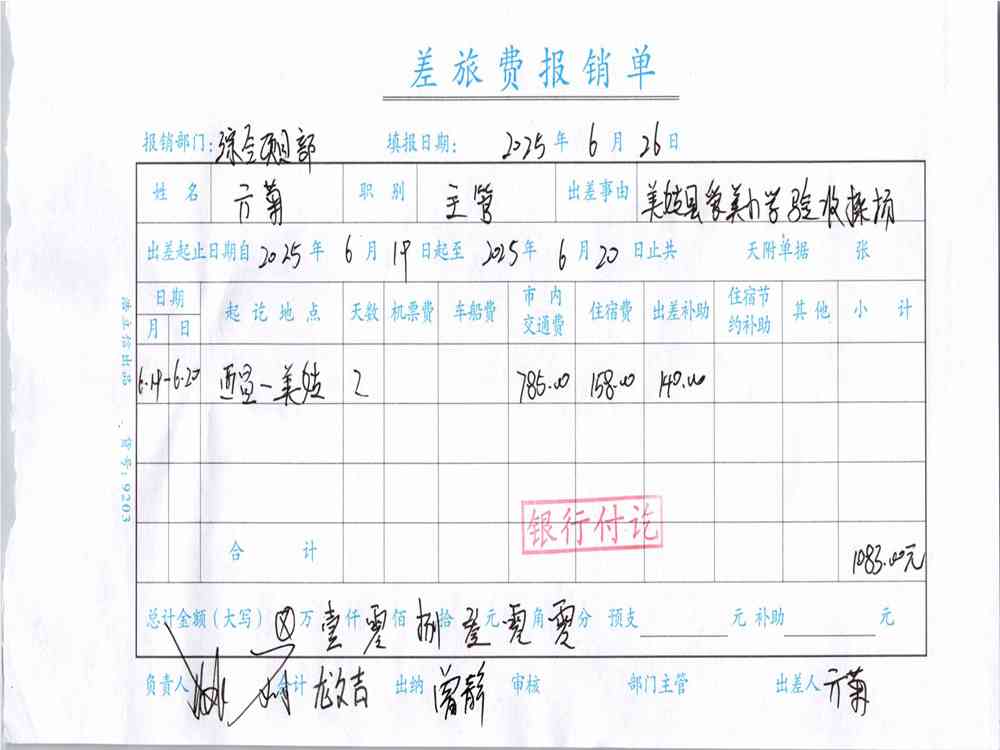 差旅费报销单
报销部门: 综合项目部 填报日期: 2025 年 6 月 26 日
姓名 亓菊 职别 主管 出差事由 美姑县 美小学验收操场
出差起止日期自 2025 年 6 月 19 日起至 2025 年 6 月 20 日止共 天附单据 张
日期 起讫地点 天数 机票费 车船费 市内交通费 住宿费 出差补助 住宿节约补助 其他 小计
月 日
6.19-6.20 西昌-美姑 2 785.00 158.00 140.00
银行付讫
合计 1083.00元
总计金额(大写) ⊗ 万 壹 仟 零 佰 捌 拾 叁 元 零 角 零 分 预支 元 补助 元
负责人 会计 龙文吉 出纳 曾静 审核 部门主管 出差人 亓菊
货号:9203